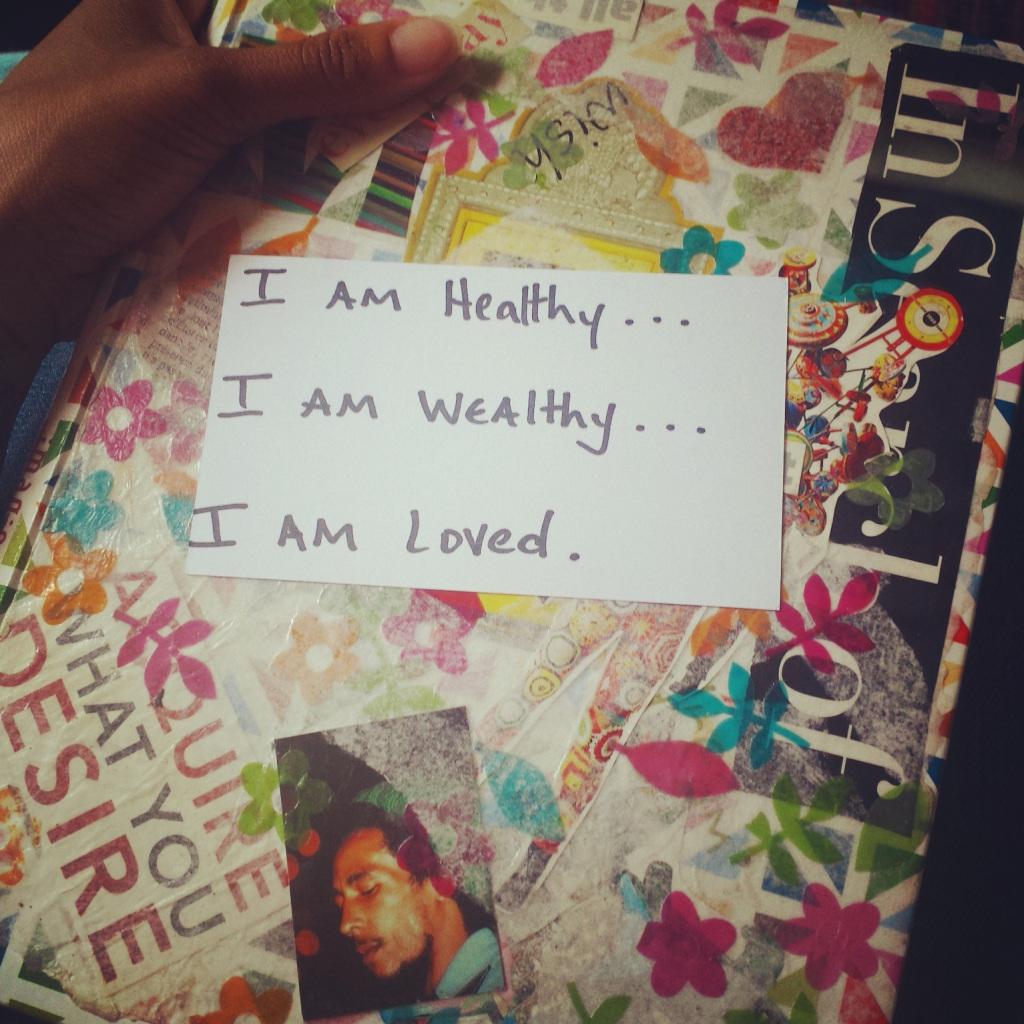 I AM Healthy...
I AM WEAlthy...
I AM Loved.
wish
all
ACQUIRE
WHAT YOU
DESIRE
of